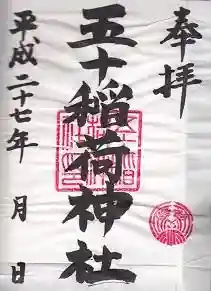 奉拝
五十稲荷神社
平成二十七年 月 日